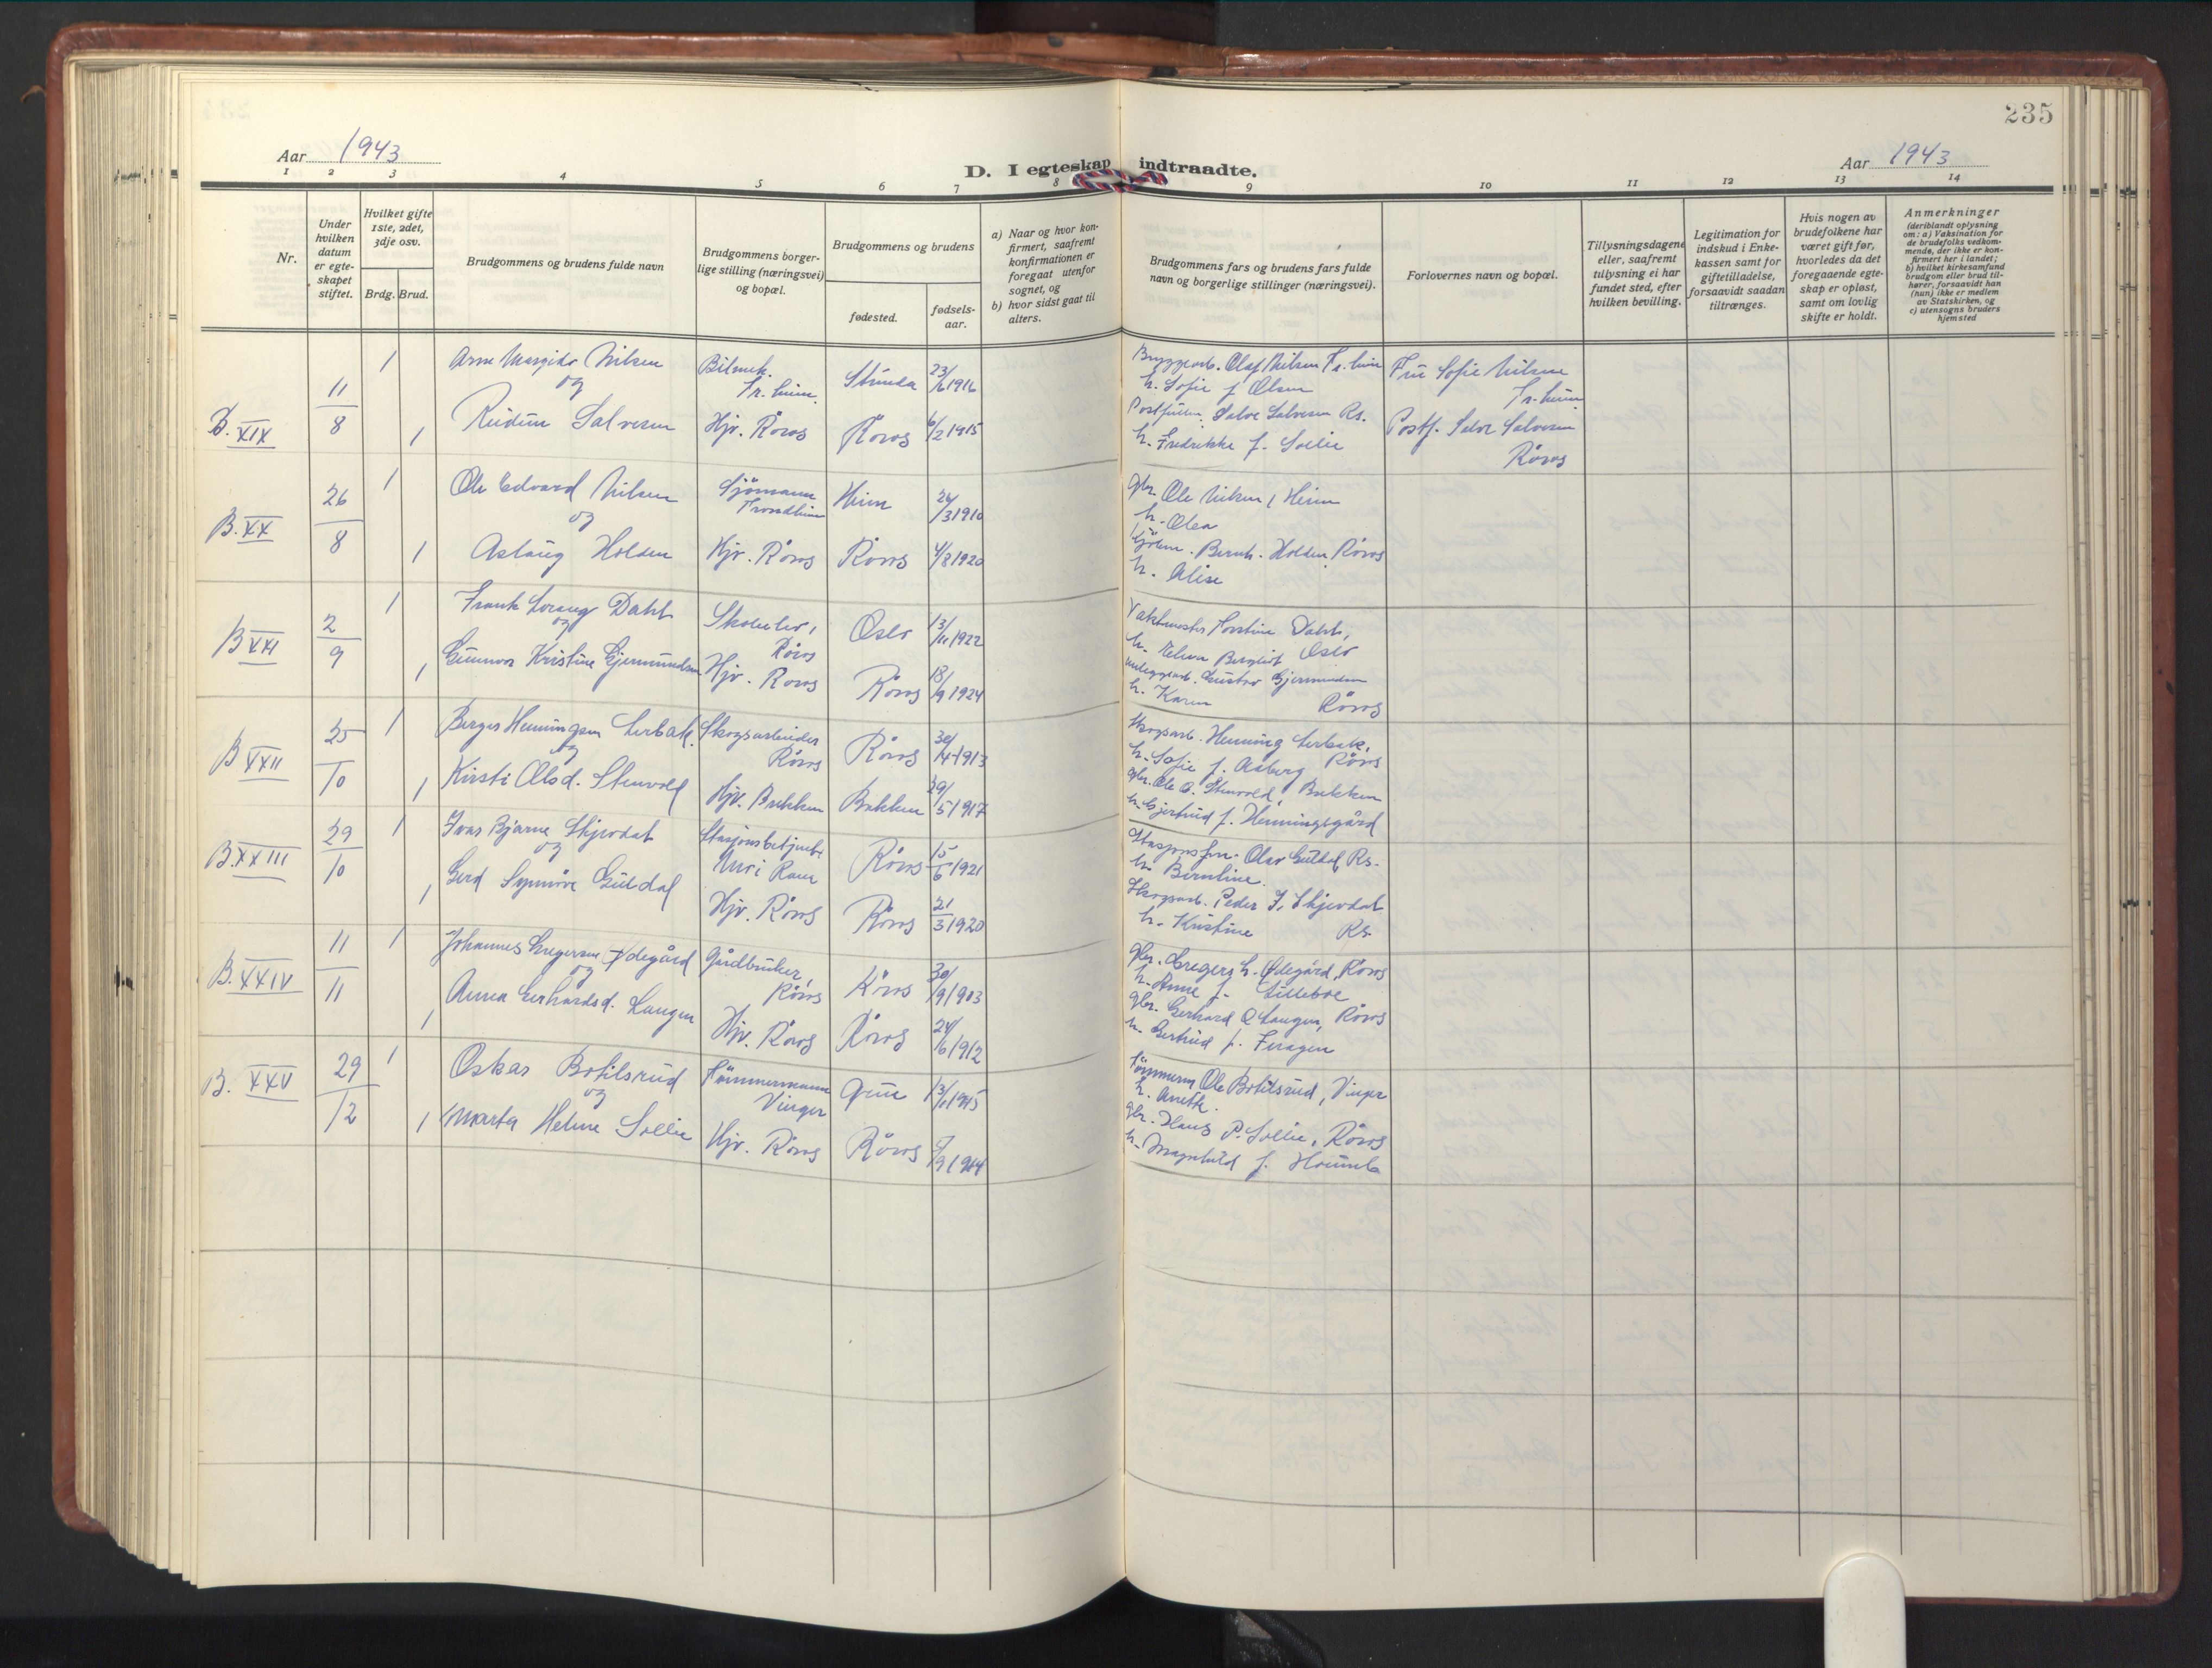 235
Aar 1943
D. I egteskap indtraadte.
Aar 1943
1 2 3 4 5 6 7 8 9 10 11 12 13 14
Nr.
Under hvilken datum er egteskapet stiftet.
Hvilket gifte 1ste, 2det, 3dje osv.
Brdg. Brud.
Brudgommens og brudens fulde navn
Brudgommens borgerlige stilling (næringsvei) og bopæl.
Brudgommens og brudens
fødested.
fødselsaar.
a) Naar og hvor konfirmert, saafremt konfirmationen er foregaat utenfor sognet, og
b) hvor sidst gaat til alters.
Brudgommens fars og brudens fars fulde navn og borgerlige stillinger (næringsvei).
Forlovernes navn og bopæl.
Tillysningsdagene eller, saafremt tillysning ei har fundet sted, efter hvilken bevilling.
Legitimation for indskud i Enkekassen samt for giftetilladelse, forsaavidt saadan tiltrænges.
Hvis nogen av brudefolkene har været gift før, hvorledes da det foregaaende egteskap er opløst, samt om lovlig skifte er holdt.
Anmerkninger
(deriblandt oplysning om: a) Vaksination for de brudefolks vedkommende, der ikke er konfirmert her i landet;
b) hvilket kirkesamfund brudgom eller brud tilhører, forsaavidt han (hun) ikke er medlem av Statskirken, og
c) utensogns bruders hjemsted
B. XIX 11/8 1 Arne Margido Nilsen Tr.heim. 1916 Olaf Nilsen Tr.heim Fru Sofie Nilsen
og h. Sofie f. Olsen Tr.heim
1 Salvesen Hjv. Röros Röros 6/2 1915 Salve Salvesen Rs. Postf. Salve Salvesen
h. Fredrikke f. Sollie Röros
B. XX 26/8 1 Ole Edvard Nilsen Sjömann Trondheim Heim 24/3 1910 gbr. Ole Nilsen, Heim
og h. Olea
1 Aslaug Holden Hjv. Röros Röros 4/8 1920 Bernh. Holden, Röros
h. Alise
B XXI 2/9 1 Frank Dahl Skoleelev, Röros Oslo 13/11 1922 Vaktmester Dahl,
og h. Bergliot Oslo
1 Gunnvor Kristine Gjermundsen Hjv. Röros Röros 18/9 1924 Gustav Gjermundsen
h. Karen Röros
B XXII 25/10 1 Birger Henningsen Serbak. Skogsarbeider Röros Röros 30/4 1913 Skogsarb. Henning Serbak,
og h. Sofie f. Aasberg Röros
1 Kirsti Olsd. Stenvold Hjv. Brekken Brekken 29/5 1917 gbr. Ole O. Stenvold, Brekken
h. Gjertrud f. Henningsgård
B. XXIII 29/10 1 Ivar Bjarne Skjevdal Stasjonsbetjent Röros 15/6 1921 Olav Guldal Rs.
og h. Berntine.
1 Gerd Synnöve Guldal Hjv. Röros Röros 21/3 1920 Skogsarb. Peder I. Skjevdal
h. Kristine Rs.
B. XXIV 11/11 1 Johannes Gregersen Ödegård Gårdbruker, Röros Röros 30/9 1903 gbr. Gregers h. Ödegård, Röros
og h. Anne f. Lilleboe
1 Anna Gerhardsd. Langen Hjv. Röros Röros 24/6 1912 gbr. Gerhard O. Langen, Röros
h. Gertrud f. Feragen
B. XXV 29/12 1 Oskar Botilsrud Tömmermann Vinger Grue 13/1 1915 Tömmerm. Ole Botilsrud, Vinger
og h. Anette.
1 Marta Helene Sollie Hjv. Röros Röros 7/9 1914 gbr. Hans P. Sollie, Röros
h. Magnhild f.